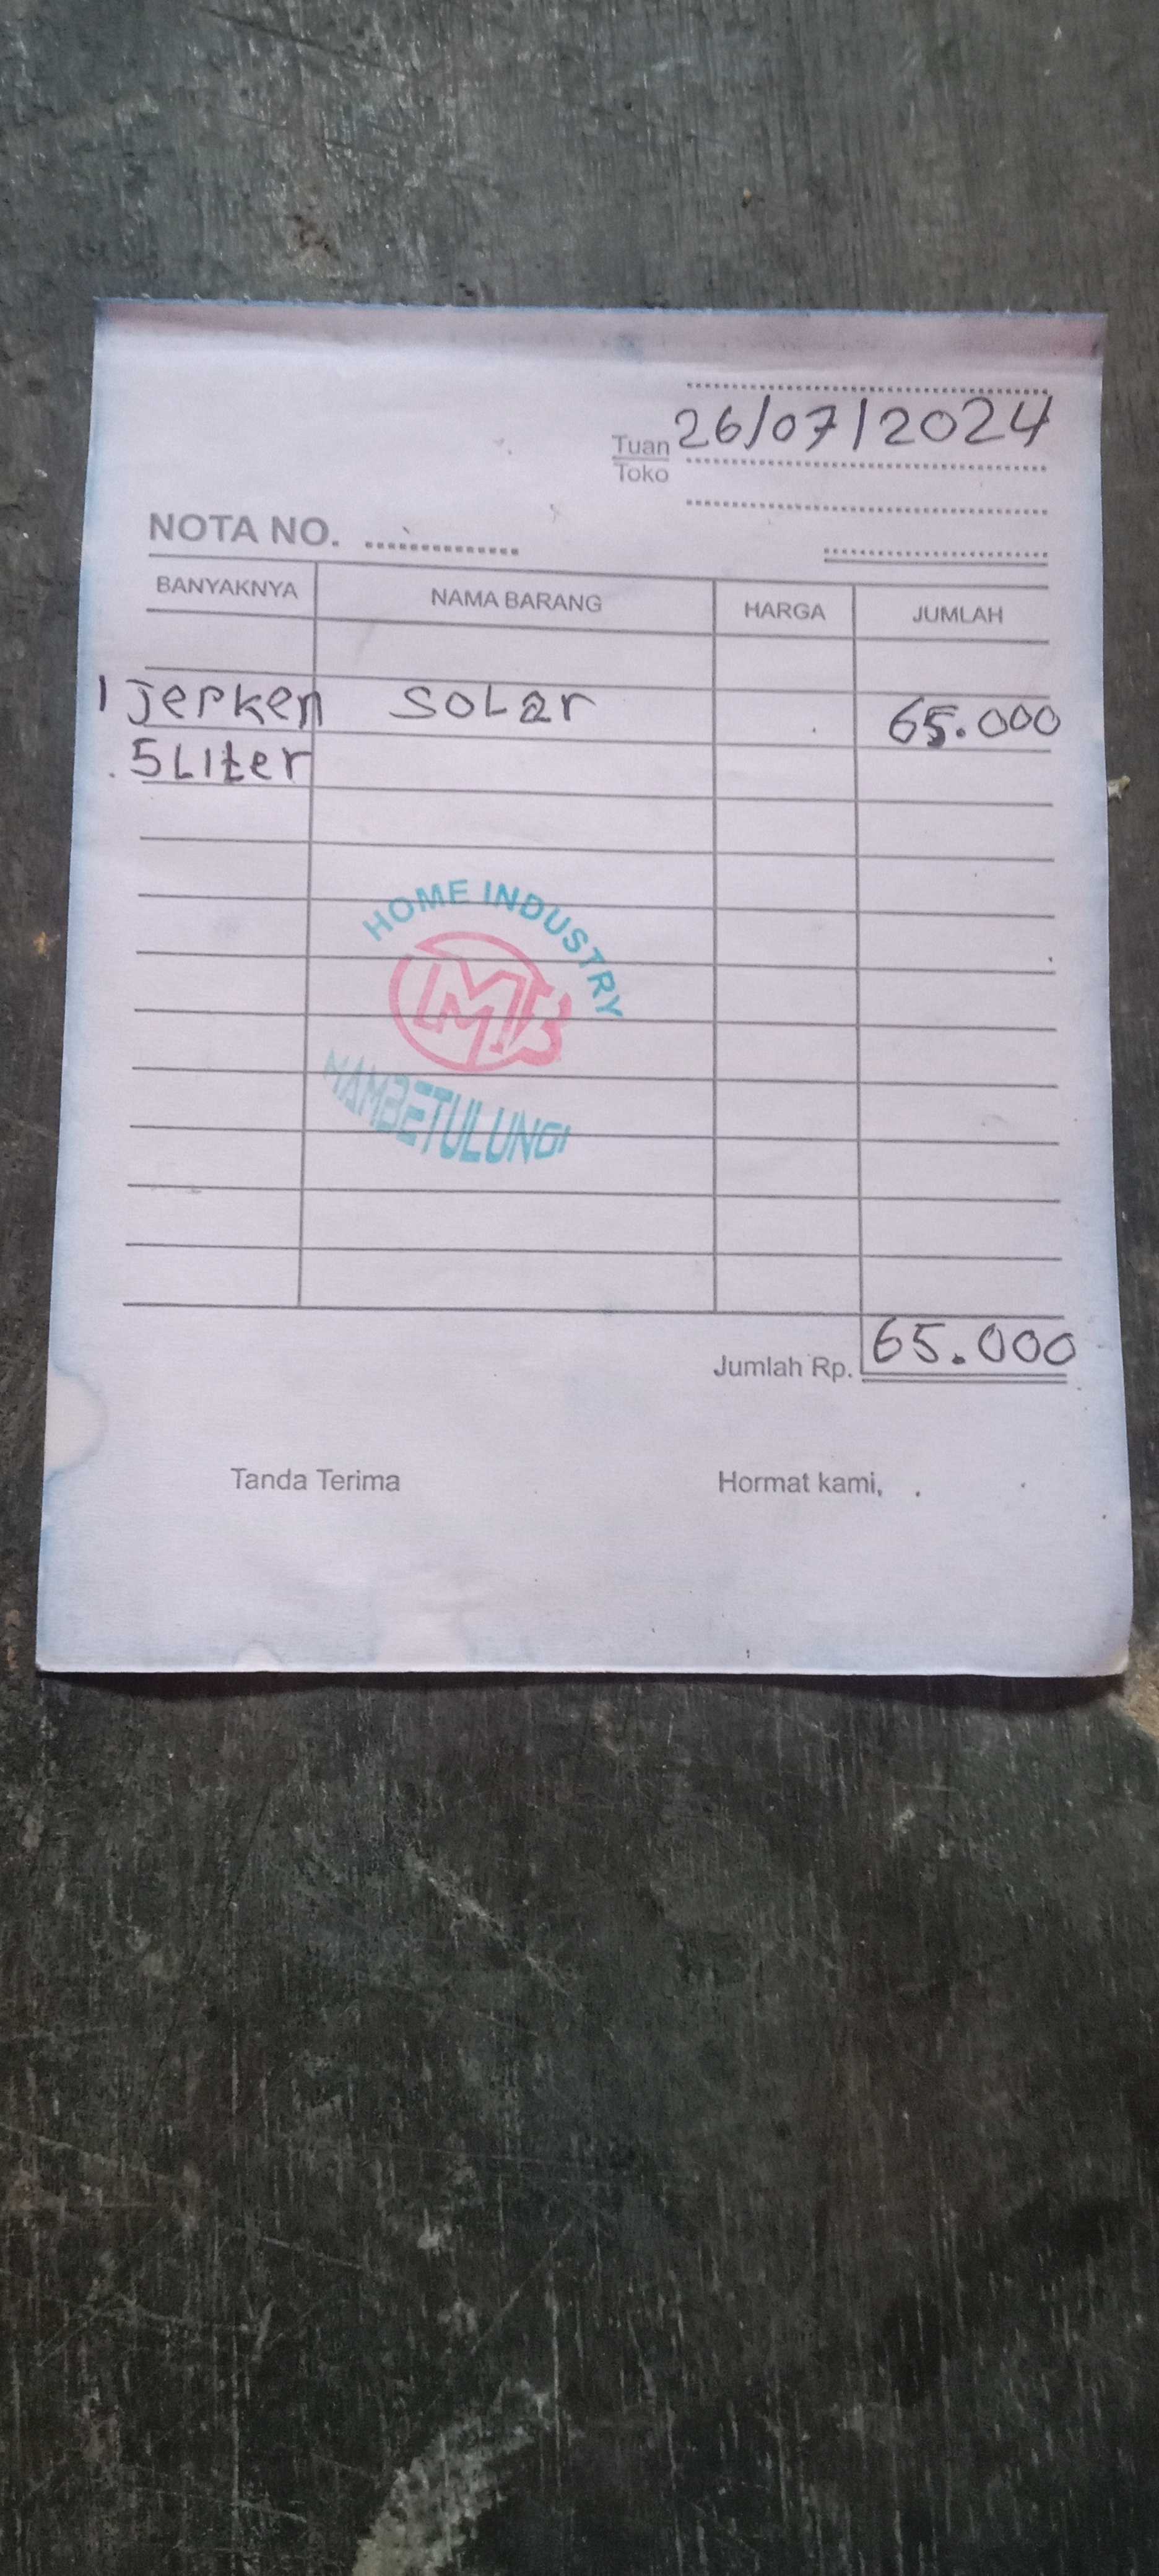 26/07/2024
Tuan
Toko
NOTA NO.
BANYAKNYA NAMA BARANG HARGA JUMLAH
1 Jerken SOLar 65.000
5 LIter
HOME INDUSTRY
MB
MAMBETULUNGI
Jumlah Rp. 65.000
Tanda Terima Hormat kami,